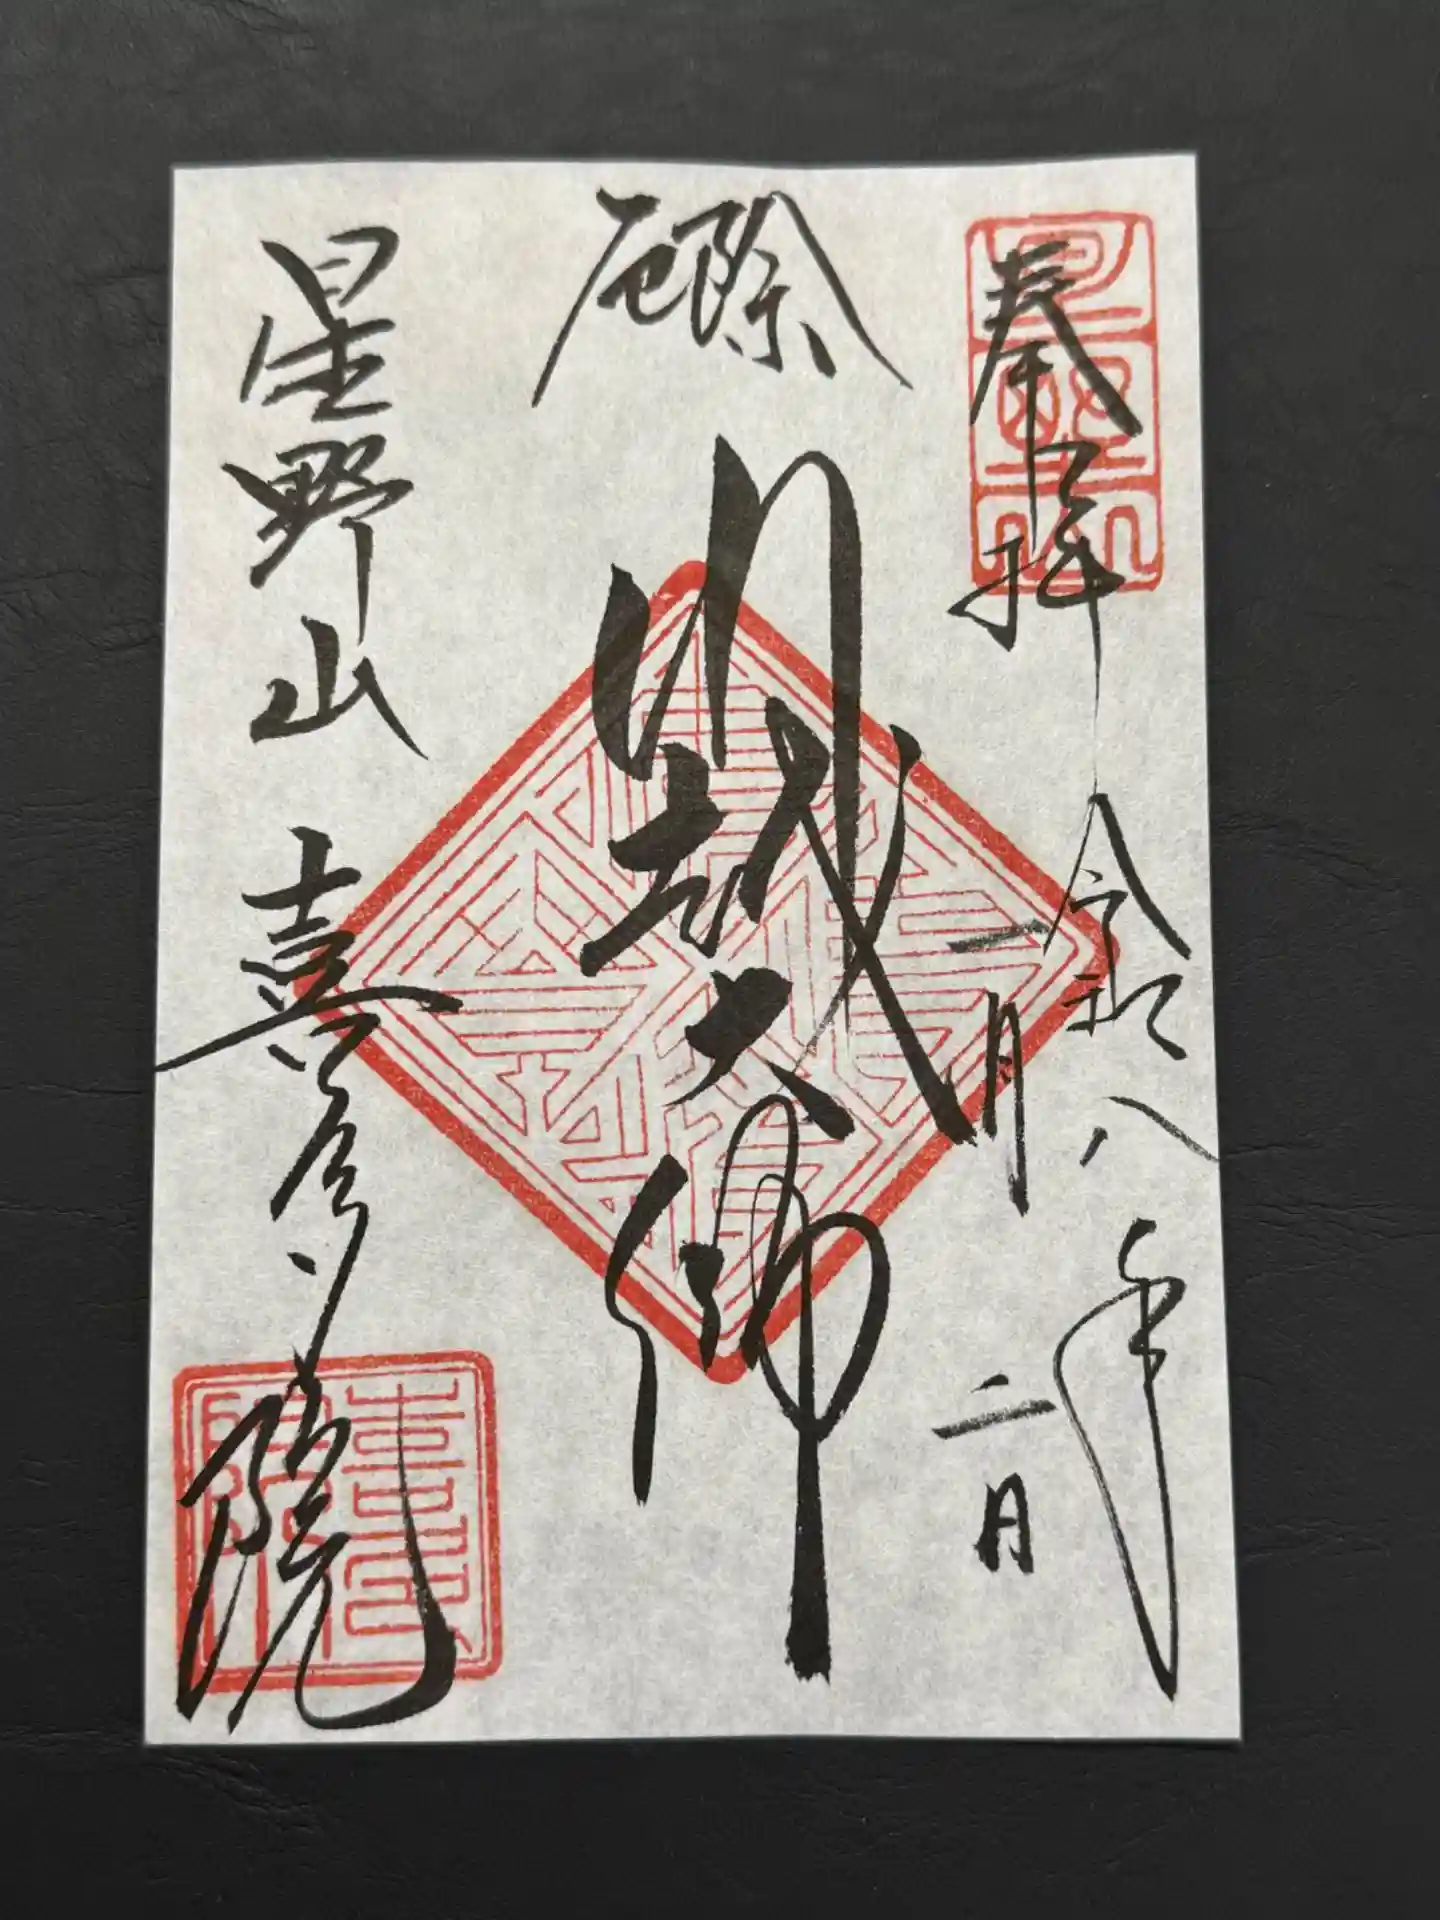 奉拝
令和八年
一月二日
厄除
川越大師
星野山
喜多院